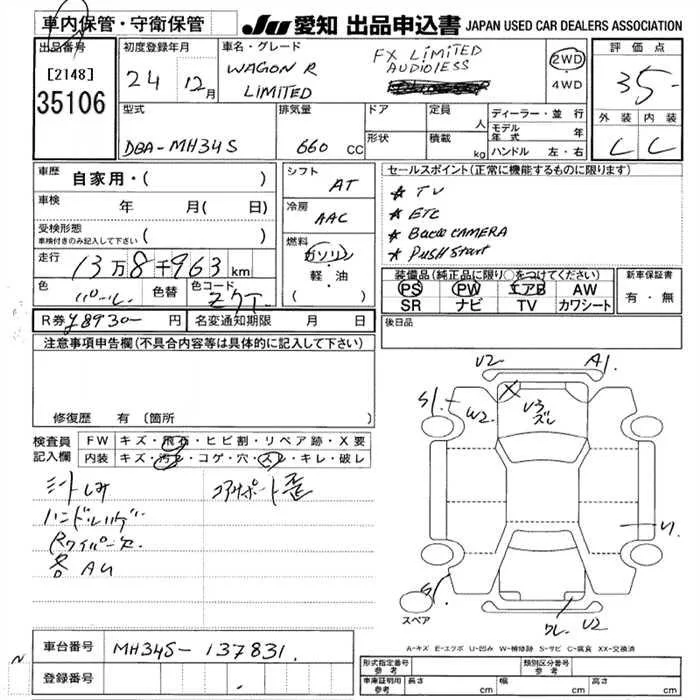 車内保管・守衛保管
JU 愛知 出品申込書 JAPAN USED CAR DEALERS ASSOCIATION
出品番号
[2148]
35106
初度登録年月
24 12月
車名・グレード
WAGON R
LIMITED
FX LIMITED
AUDIOLESS
2WD
4WD
評価点
35-
外装 内装
C C
型式
DBA-MH34S
排気量
660 CC
ドア
形状
定員 人
積載 kg
ディーラー・並行
モデル年式 年
ハンドル 左・右
車歴 自家用・( )
車検 年 月( 日)
受検形態
車検付きのみ記入して下さい ( )
走行
13万8千963km
色
パール
色替
色コード
ZQT
シフト
AT
冷房
AAC
燃料
ガソリン
軽・油
( )
セールスポイント(正常に機能するものに限ります)
* TV
* ETC
* Back CAMERA
* Push Start
装備品(純正品に限り○をつけてください)
PS PW エアB AW
SR ナビ TV カワシート
新車保証書
有・無
R券 ¥8930- 円
名変通知期限 月 日
後日品
注意事項申告欄(不具合内容等は具体的に記入して下さい)
修復歴 有(箇所
検査員記入欄
FW キズ・飛石・ヒビ割・リペア跡・X要
内装 キズ・汚れ・コゲ・穴・スレ・キレ・破レ
シートしみ
ハンドルハゲ
Rワイパー欠
各AU
コアサポート歪
U2 A1
S1
W2
U3
ズレ
U1
S1
ワレ U2
スペア
A-キズ E-エクボ U-凹み W-補修跡 S-サビ C-腐食 XX-交換済
車台番号 MH34S-137831
登録番号
形式指定番号
参考
類別区分番号
参考
車庫証明用
参考
長さ cm
幅 cm
高さ cm